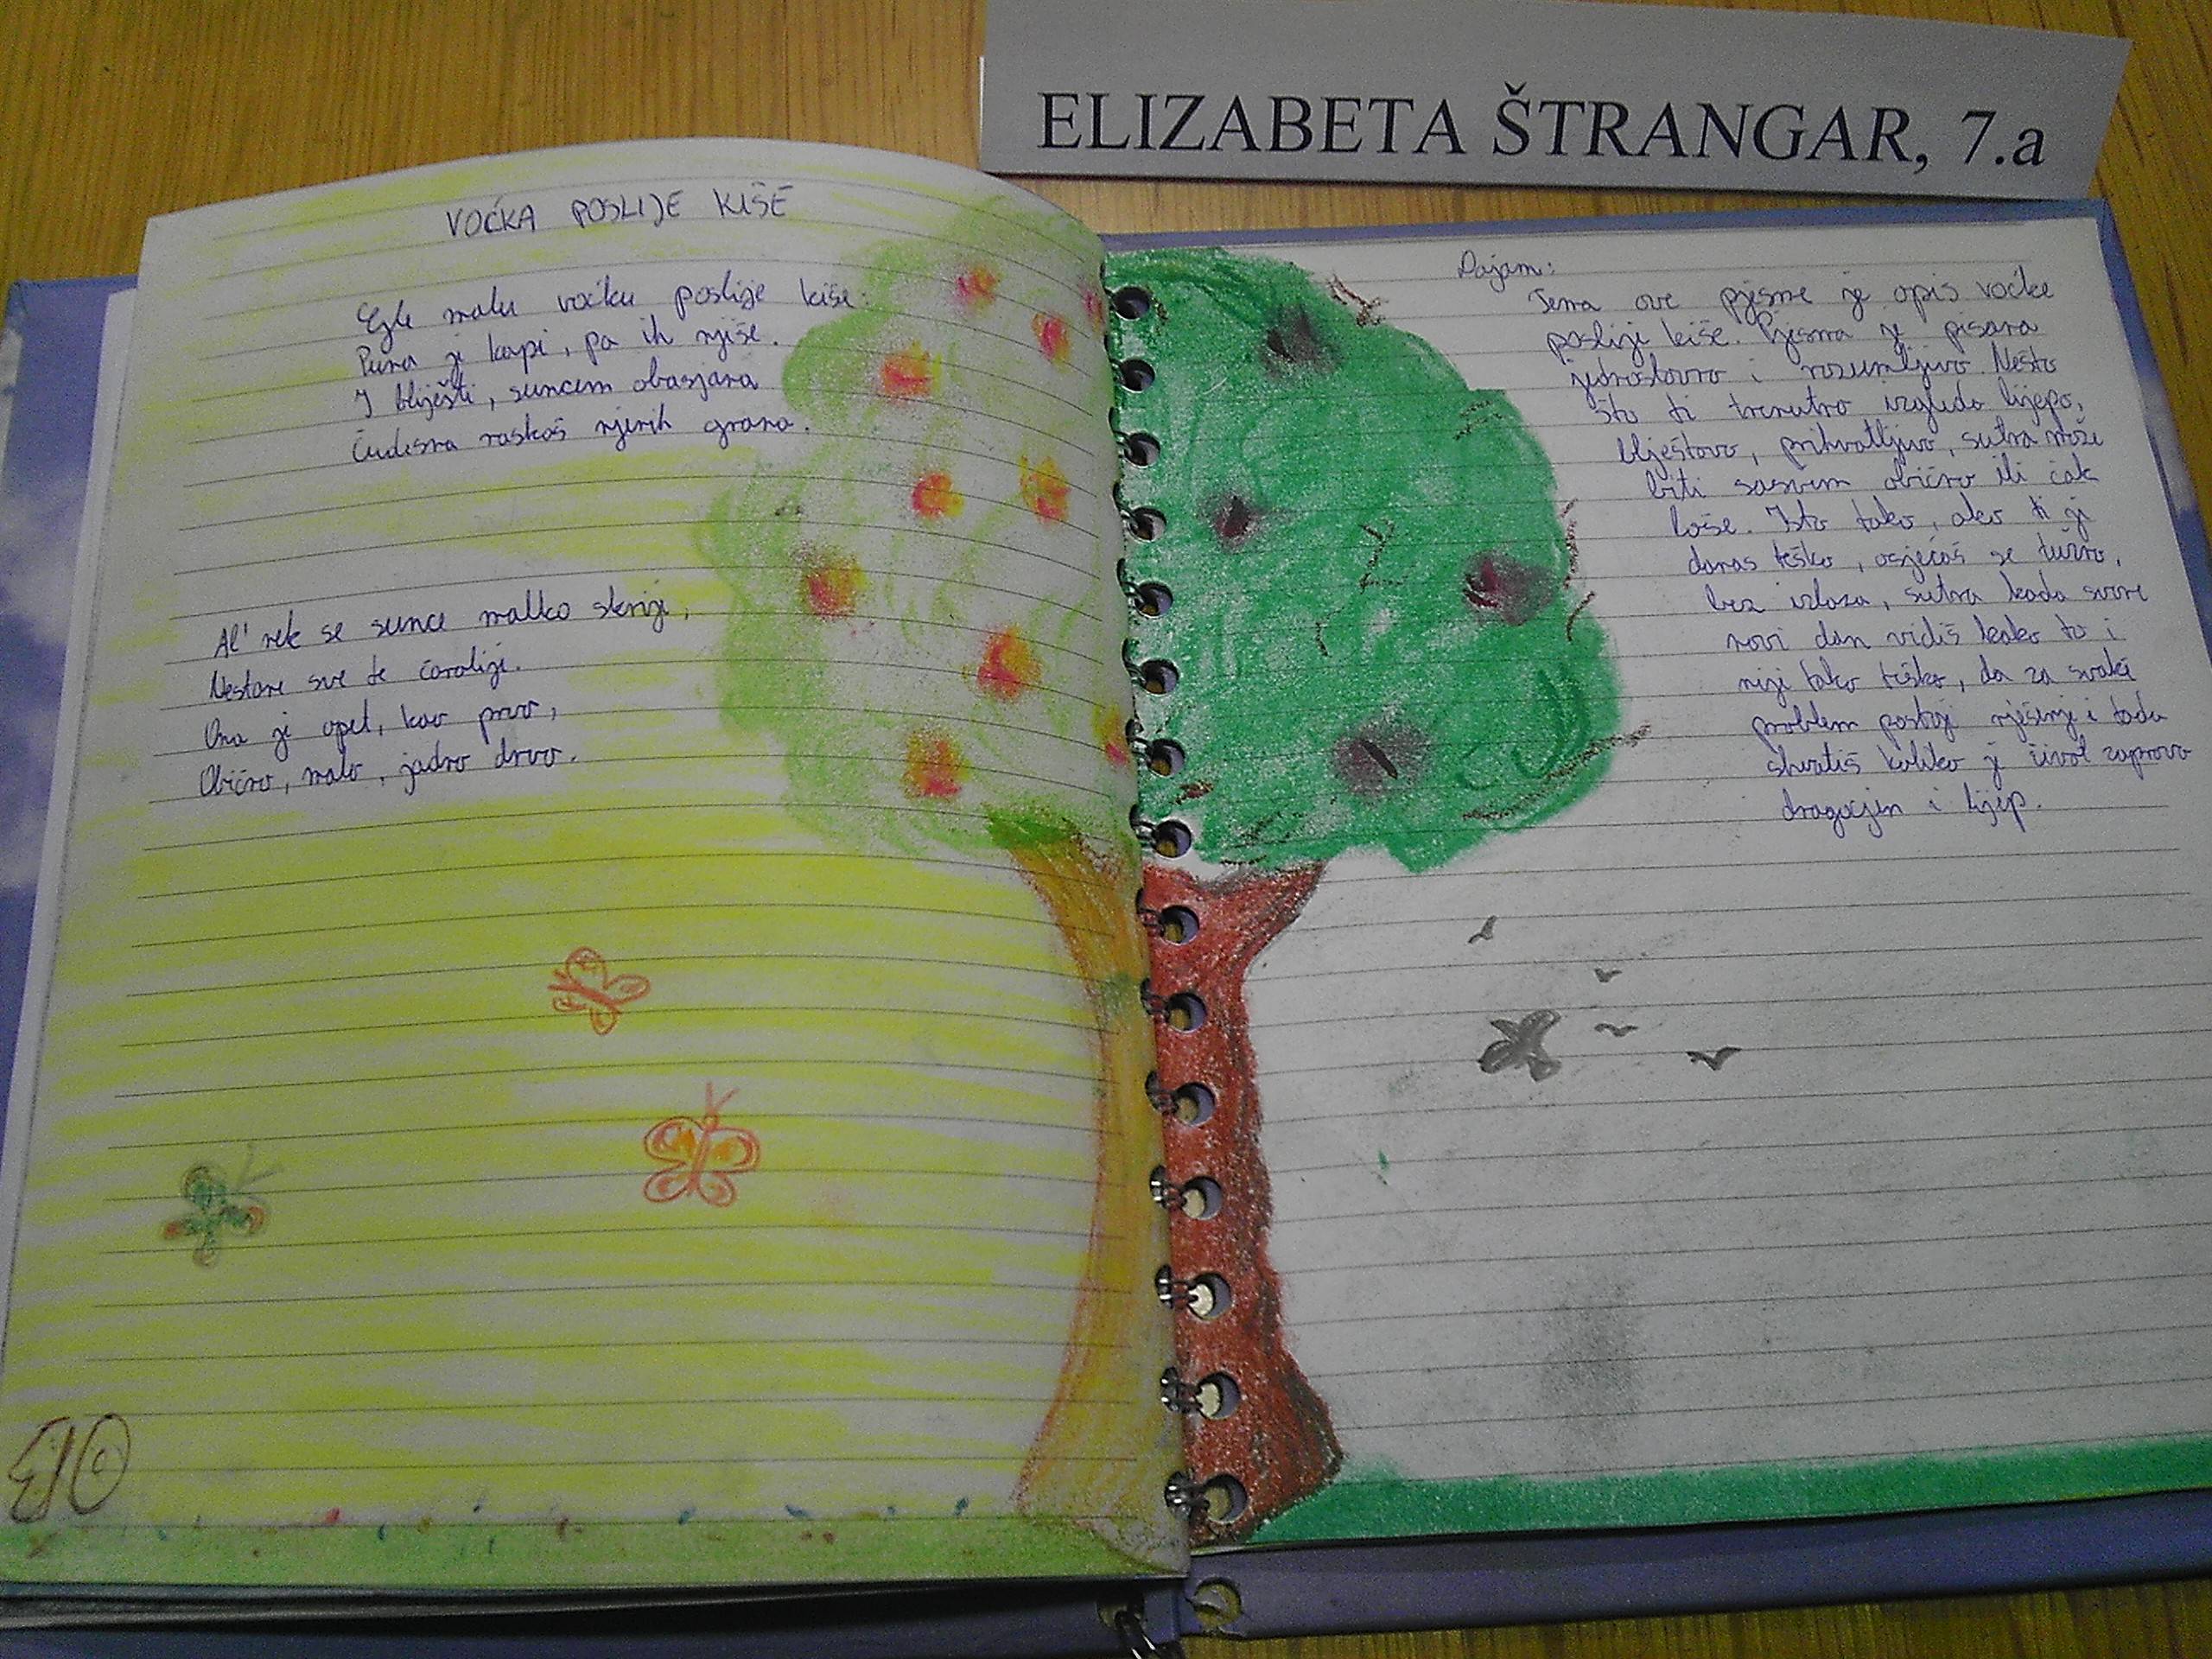 ELIZABETA ŠTRANGAR, 7.a
VOĆKA POSLIJE KIŠE
Gle malu voćku poslije kiše:
Puna je kapi, pa ih njiše.
I bliješti, suncem obasjana
Čudesna raskoš njenih grana.
Al' nek se sunce malko skrije,
Nestane sve te čarolije.
Ona je opet, kao prvo,
Obično, malo, jadno drvo.
Dojam:
Tema ove pjesme je opis voćke
poslije kiše. Pjesma je pisana
jednostavno i razumljivo. Nešto
što ti trenutno izgleda lijepo,
blještavo, prihvatljivo, sutra može
biti sasvim obično ili čak
loše. Isto tako, ako ti je
danas teško, osjećaš se tužno,
bez izlaza, sutra kada svane
novi dan vidiš kako to i
nije tako teško, da za svaki
problem postoji rješenje i tada
shvatiš koliko je život zapravo
dragocjen i lijep.